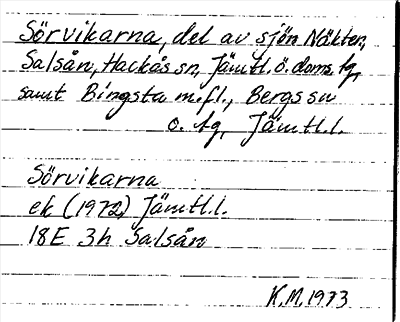 Sörvikarna, del av sjön Näkten,
Salsån, Hackås sn, Jämtl. ö. doms. tg,
samt Bingsta m.fl., Bergs sn
o. tg, Jämtl.l.
Sörvikarna
ek (1972) Jämtl.l.
18E 3h Salsån
K.M. 1973